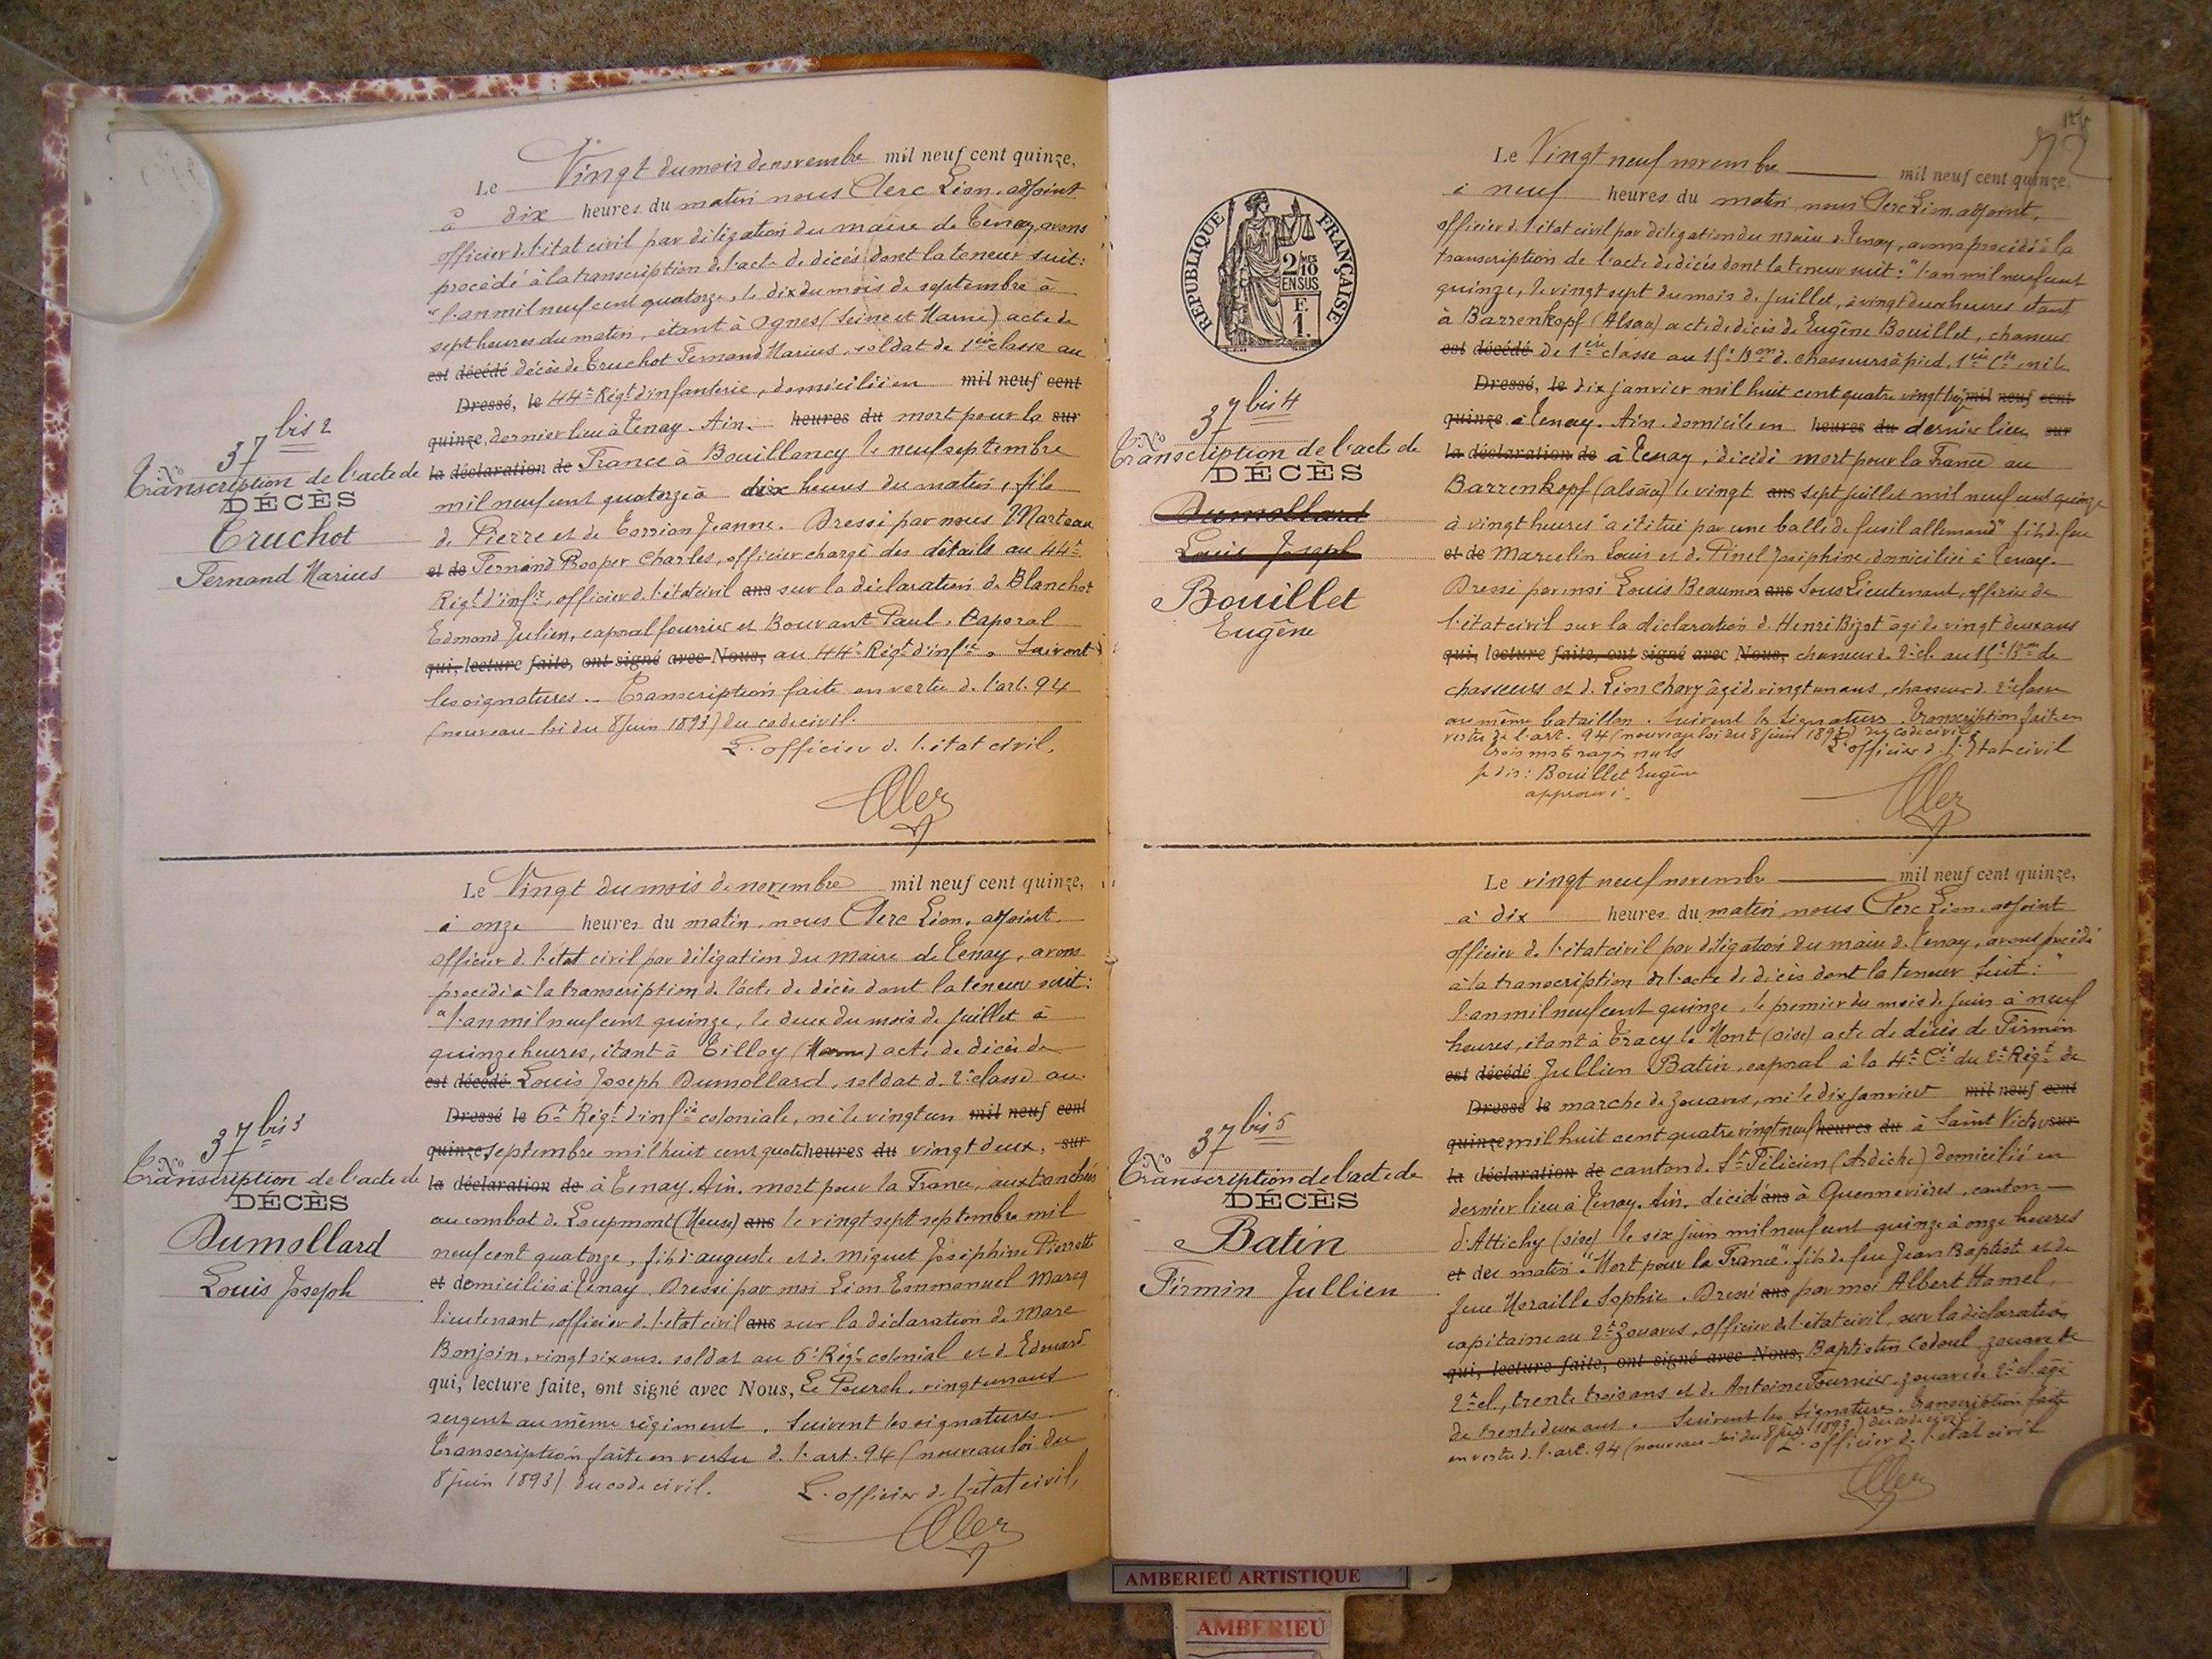 Le Vingt du mois de novembre mil neuf cent quinze,
à dix heures du matin nous Clerc Léon, adjoint
officier de l'état civil par délégation du maire de Tenay, avons
procédé à la transcription de l'acte de décès dont la teneur suit:
"l'an mil neuf cent quatorze, le dix du mois de septembre à
sept heures du matin, étant à Ognes (Seine et Marne) acte de
est décédé décès de Truchot Fernand Marius, soldat de 1ère classe au
Dressé, le 44e Régt d'infanterie, domicilié en mil neuf cent
quinze, dernier lieu à Tenay. Ain. heures du mort pour la sur
la déclaration de France à Bouillancy le neuf septembre
mil neuf cent quatorze à dix heures du matin, fils
de Pierre et de Jeanne. Dressé par nous Marteau
et de Fernand Prosper Charles, officier chargé des détails au 44e
Régt d'infie, officier de l'état civil ans sur la déclaration de Blanchot
Edmond Julien, caporal fourrier et Bouvant Paul, Caporal
qui, lecture faite, ont signé avec Nous, au 44e Régt d'infie. Suivent
les signatures. Transcription faite en vertu de l'art. 94
(nouveau loi du 8 Juin 1893) du code civil.
L'officier de l'état civil,
Clerc
37 bis 2
No
Transcription de l'acte de
DÉCÈS
Truchot
Fernand Marius
Le Vingt du mois de novembre mil neuf cent quinze,
à onze heures du matin, nous Clerc Léon, adjoint
officier de l'état civil par délégation du maire de Tenay, avons
procédé à la transcription de l'acte de décès dont la teneur suit:
"l'an mil neuf cent quinze, le deux du mois de Juillet à
quinze heures, étant à Tilloy (Marne) acte de décès de
est décédé Louis Joseph Dumollard, soldat de 2e classe au
Dressé le 6e Régt d'infie coloniale, né le vingt un mil neuf cent
quinze septembre mil huit cent quatre heures du vingt deux, sur
la déclaration de à Tenay. Ain. mort pour la France, aux tranchées
au combat de Loupmont (Meuse) ans le vingt sept septembre mil
neuf cent quatorze, fils d'auguste et de Miguet Joséphine Pierrette
et domiciliés à Tenay. Dressé par moi Léon Emmanuel Marcq
lieutenant, officier de l'état civil ans sur la déclaration de Marc
Bonjoin, vingt six ans, soldat au 6e Régt colonial et d'Edouard
qui, lecture faite, ont signé avec Nous, Le Pourch, vingt un ans
sergent au même régiment. Suivent les signatures
Transcription faite en vertu de l'art. 94 (nouveau loi du
8 juin 1893) du code civil.
L'officier de l'état civil,
Clerc
37 bis 3
No
Transcription de l'acte de
DÉCÈS
Dumollard
Louis Joseph
Le Vingt neuf novembre mil neuf cent quinze,
à neuf heures du matin, nous Clerc Léon, adjoint,
officier de l'état civil par délégation du maire de Tenay, avons procédé à la
transcription de l'acte de décès dont la teneur suit: "l'an mil neuf cent
quinze, le vingt sept du mois de juillet, à vingt deux heures étant
à Barrenkopf (Alsace) acte de décès de Eugène Bouillet, chasseur
est décédé de 1ère classe au 15e Bon de chasseurs à pied, 1ère Cie, né le
Dressé, le dix janvier mil huit cent quatre vingt mil neuf cent
quinze à Tenay. Ain. domicilié en heures du dernier lieu sur
la déclaration de à Tenay, décédé mort pour la France au
Barrenkopf (alsace) le vingt ans sept juillet mil neuf cent quinze
à vingt heures "a été tué par une balle de fusil allemand" fils de feu
et de Marcelin Louis et de Pinel Joséphine, domiciliée à Tenay.
Dressé par moi Louis Beaumon ans Sous Lieutenant, officier de
l'état civil sur la déclaration de Henri Bizot âgé de vingt deux ans
qui, lecture faite, ont signé avec Nous, chasseur de 2e cl. au 15e Bon de
chasseurs et de Léon Chary âgé de vingt un ans, chasseur de 2e classe
au même bataillon. Suivent les signatures. Transcription faite en
vertu de l'art. 94 (nouveau loi du 8 juin 1893) du code civil.
trois mots rayés nuls
L'officier de l'état civil
je dis: Bouillet Eugène
approuvé.
Clerc
RÉPUBLIQUE FRANÇAISE
2/10 MES
EN SUS
F.
1.
37 bis 4
No
Transcription de l'acte de
DÉCÈS
Dumollard
Louis Joseph
Bouillet
Eugène
Le vingt neuf novembre mil neuf cent quinze,
à dix heures du matin, nous Clerc Léon, adjoint
officier de l'état civil par délégation du maire de Tenay, avons procédé
à la transcription de l'acte de décès dont la teneur suit: "
l'an mil neuf cent quinze, le premier du mois de Juin à neuf
heures, étant à Tracy le Mont (oise) acte de décès de Firmin
est décédé Jullien Batin, caporal à la 4e Cie du 2e Régt de
Dressé le marche de zouaves, né le dix janvier mil neuf cent
quinze mil huit cent quatre vingt neuf heures du à Saint Victor sur
la déclaration de canton de St Félicien (Ardèche) domicilié en
dernier lieu à Tenay, Ain, décédé ans à Quennevières, canton
d'Attichy (oise) le six juin mil neuf cent quinze à onze heures
et du matin. "Mort pour la France". fils de feu Jean Baptiste et de
feue Moraille Sophie. Dressé ans par moi Albert Hamel,
capitaine au 2e Zouaves, officier de l'état civil, sur la déclaration
qui, lecture faite, ont signé avec Nous, Baptistin Cedoul, zouave de
2e cl, trente trois ans et de Antoine Fournier, zouave de 2e cl. âgé
de trente deux ans. Suivent les signatures. Transcription faite
en vertu de l'art. 94 (nouveau loi du 8 juin 1893) du code civil.
L'officier de l'état civil
Clerc
37 bis 5
No
Transcription de l'acte de
DÉCÈS
Batin
Firmin Jullien
AMBERIEU ARTISTIQUE
AMBERIEU